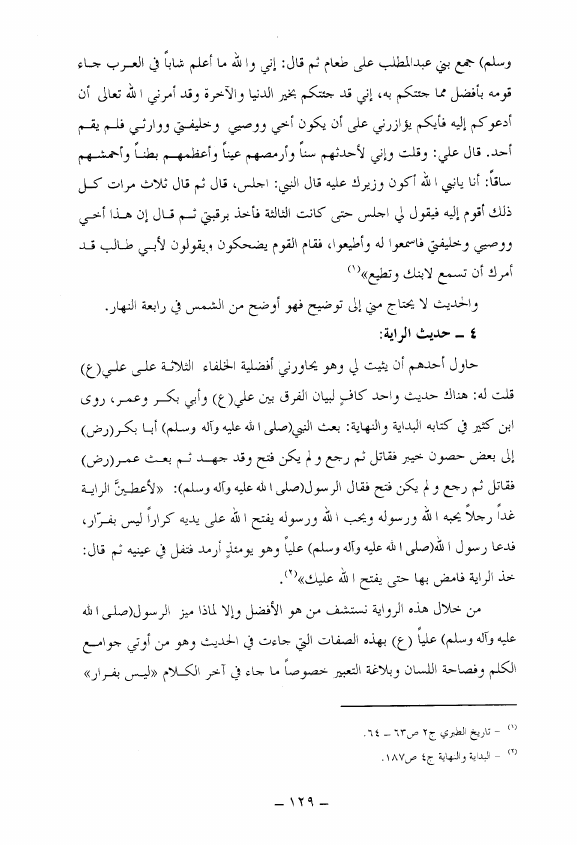 وسلم) جمع بني عبدالمطلب على طعام ثم قال: إني والله ما أعلم شاباً في العرب جاء
قومه بأفضل مما جئتكم به، إني قد جئتكم بخير الدنيا والآخرة وقد أمرني الله تعالى أن
أدعوكم إليه فأيكم يؤازرني على أن يكون أخي ووصيي وخليفتي ووارثي فلم يقم
أحد. قال علي: وقلت وإني لأحدثهم سناً وأرمصهم عيناً وأعظمهم بطناً وأحمشهم
ساقاً: أنا يانبي الله أكون وزيرك عليه قال النبي: اجلس، قال ثم قال ثلاث مرات كل
ذلك أقوم إليه فيقول لي اجلس حتى كانت الثالثة فأخذ برقبتي ثم قال إن هذا أخي
ووصيي وخليفتي فاسمعوا له وأطيعوا، فقام القوم يضحكون ويقولون لأبي طالب قد
أمرك أن تسمع لابنك وتطيع»(١)
والحديث لا يحتاج مني إلى توضيح فهو أوضح من الشمس في رابعة النهار.
٤ ـ حديث الراية:
حاول أحدهم أن يثبت لي وهو يحاورني أفضلية الخلفاء الثلاثة على علي(ع)
قلت له: هناك حديث واحد كافٍ لبيان الفرق بين علي(ع) وأبي بكر وعمر، روى
ابن كثير في كتابه البداية والنهاية: بعث النبي(صلى الله عليه وآله وسلم) أبا بكر(رض)
إلى بعض حصون خيبر فقاتل ثم رجع ولم يكن فتح وقد جهد ثم بعث عمر(رض)
فقاتل ثم رجع ولم يكن فتح فقال الرسول(صلى الله عليه وآله وسلم): «لأعطينَّ الراية
غداً رجلاً يحبه الله ورسوله ويحب الله ورسوله يفتح الله على يديه كراراً ليس بفرّار،
فدعا رسول الله(صلى الله عليه وآله وسلم) علياً وهو يومئذٍ أرمد فتفل في عينيه ثم قال:
خذ الراية فامض بها حتى يفتح الله عليك»(٢).
من خلال هذه الرواية نستشف من هو الأفضل وإلا لماذا ميز الرسول(صلى الله
عليه وآله وسلم) علياً (ع) بهذه الصفات التي جاءت في الحديث وهو من أوتي جوامع
الكلم وفصاحة اللسان وبلاغة التعبير خصوصاً ما جاء في آخر الكلام «ليس بفرار»
(١) - تاريخ الطبري ج٢ ص٦٣ – ٦٤.
(٢) - البداية والنهاية ج٤ ص١٨٧.
– ١٢٩ –